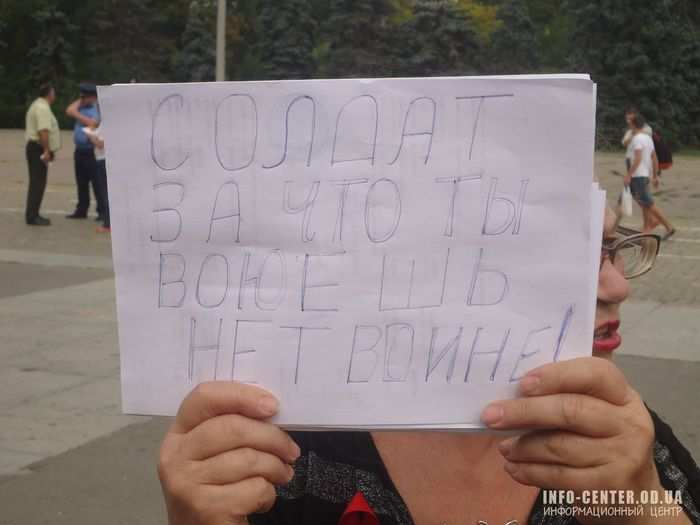 СОЛДАТ
ЗА ЧТО ТЫ
ВОЮЕШЬ
НЕТ ВОИНЕ!
INFO-CENTER.OD.UA
ИНФОРМАЦИОННЫЙ ЦЕНТР